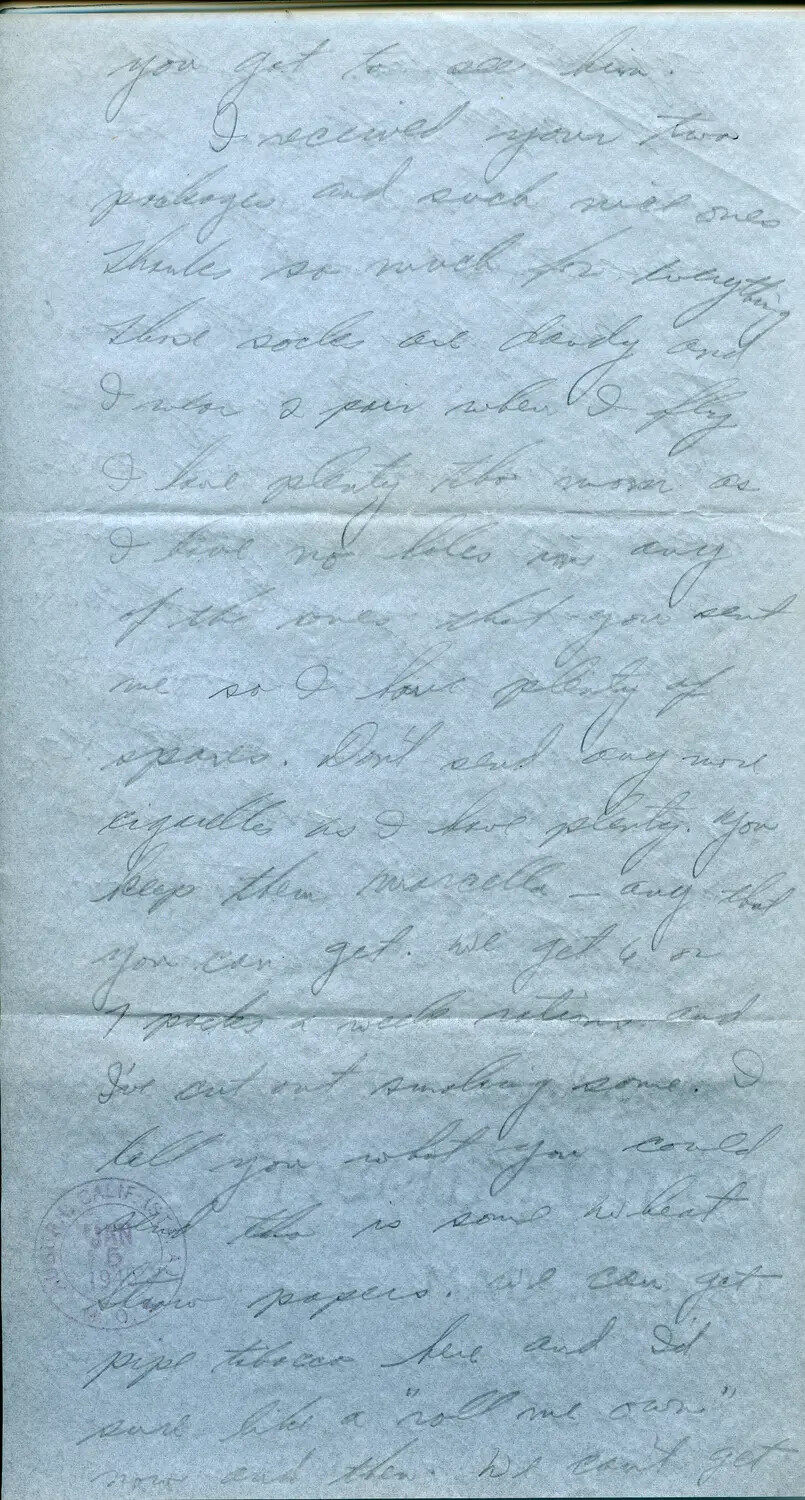 you get to see him.
I received your two
packages and such nice ones
thanks so much for everything
those socks are dandy and
I wear 2 pair when I fly
I have plenty tho mom as
I have no holes in any
of the ones that you sent
me so I have plenty of
spares. Don't send any more
cigarettes as I have plenty. You
keep them Marcella — any that
you can get. We get 6 or
7 packs a week rations and
I've cut out smoking some. I
tell you what you could
send tho is some wheat
straw papers. We can get
pipe tobacco here and I'd
sure like a "roll me own"
now and then. We can't get
CALIF.
JAN
5